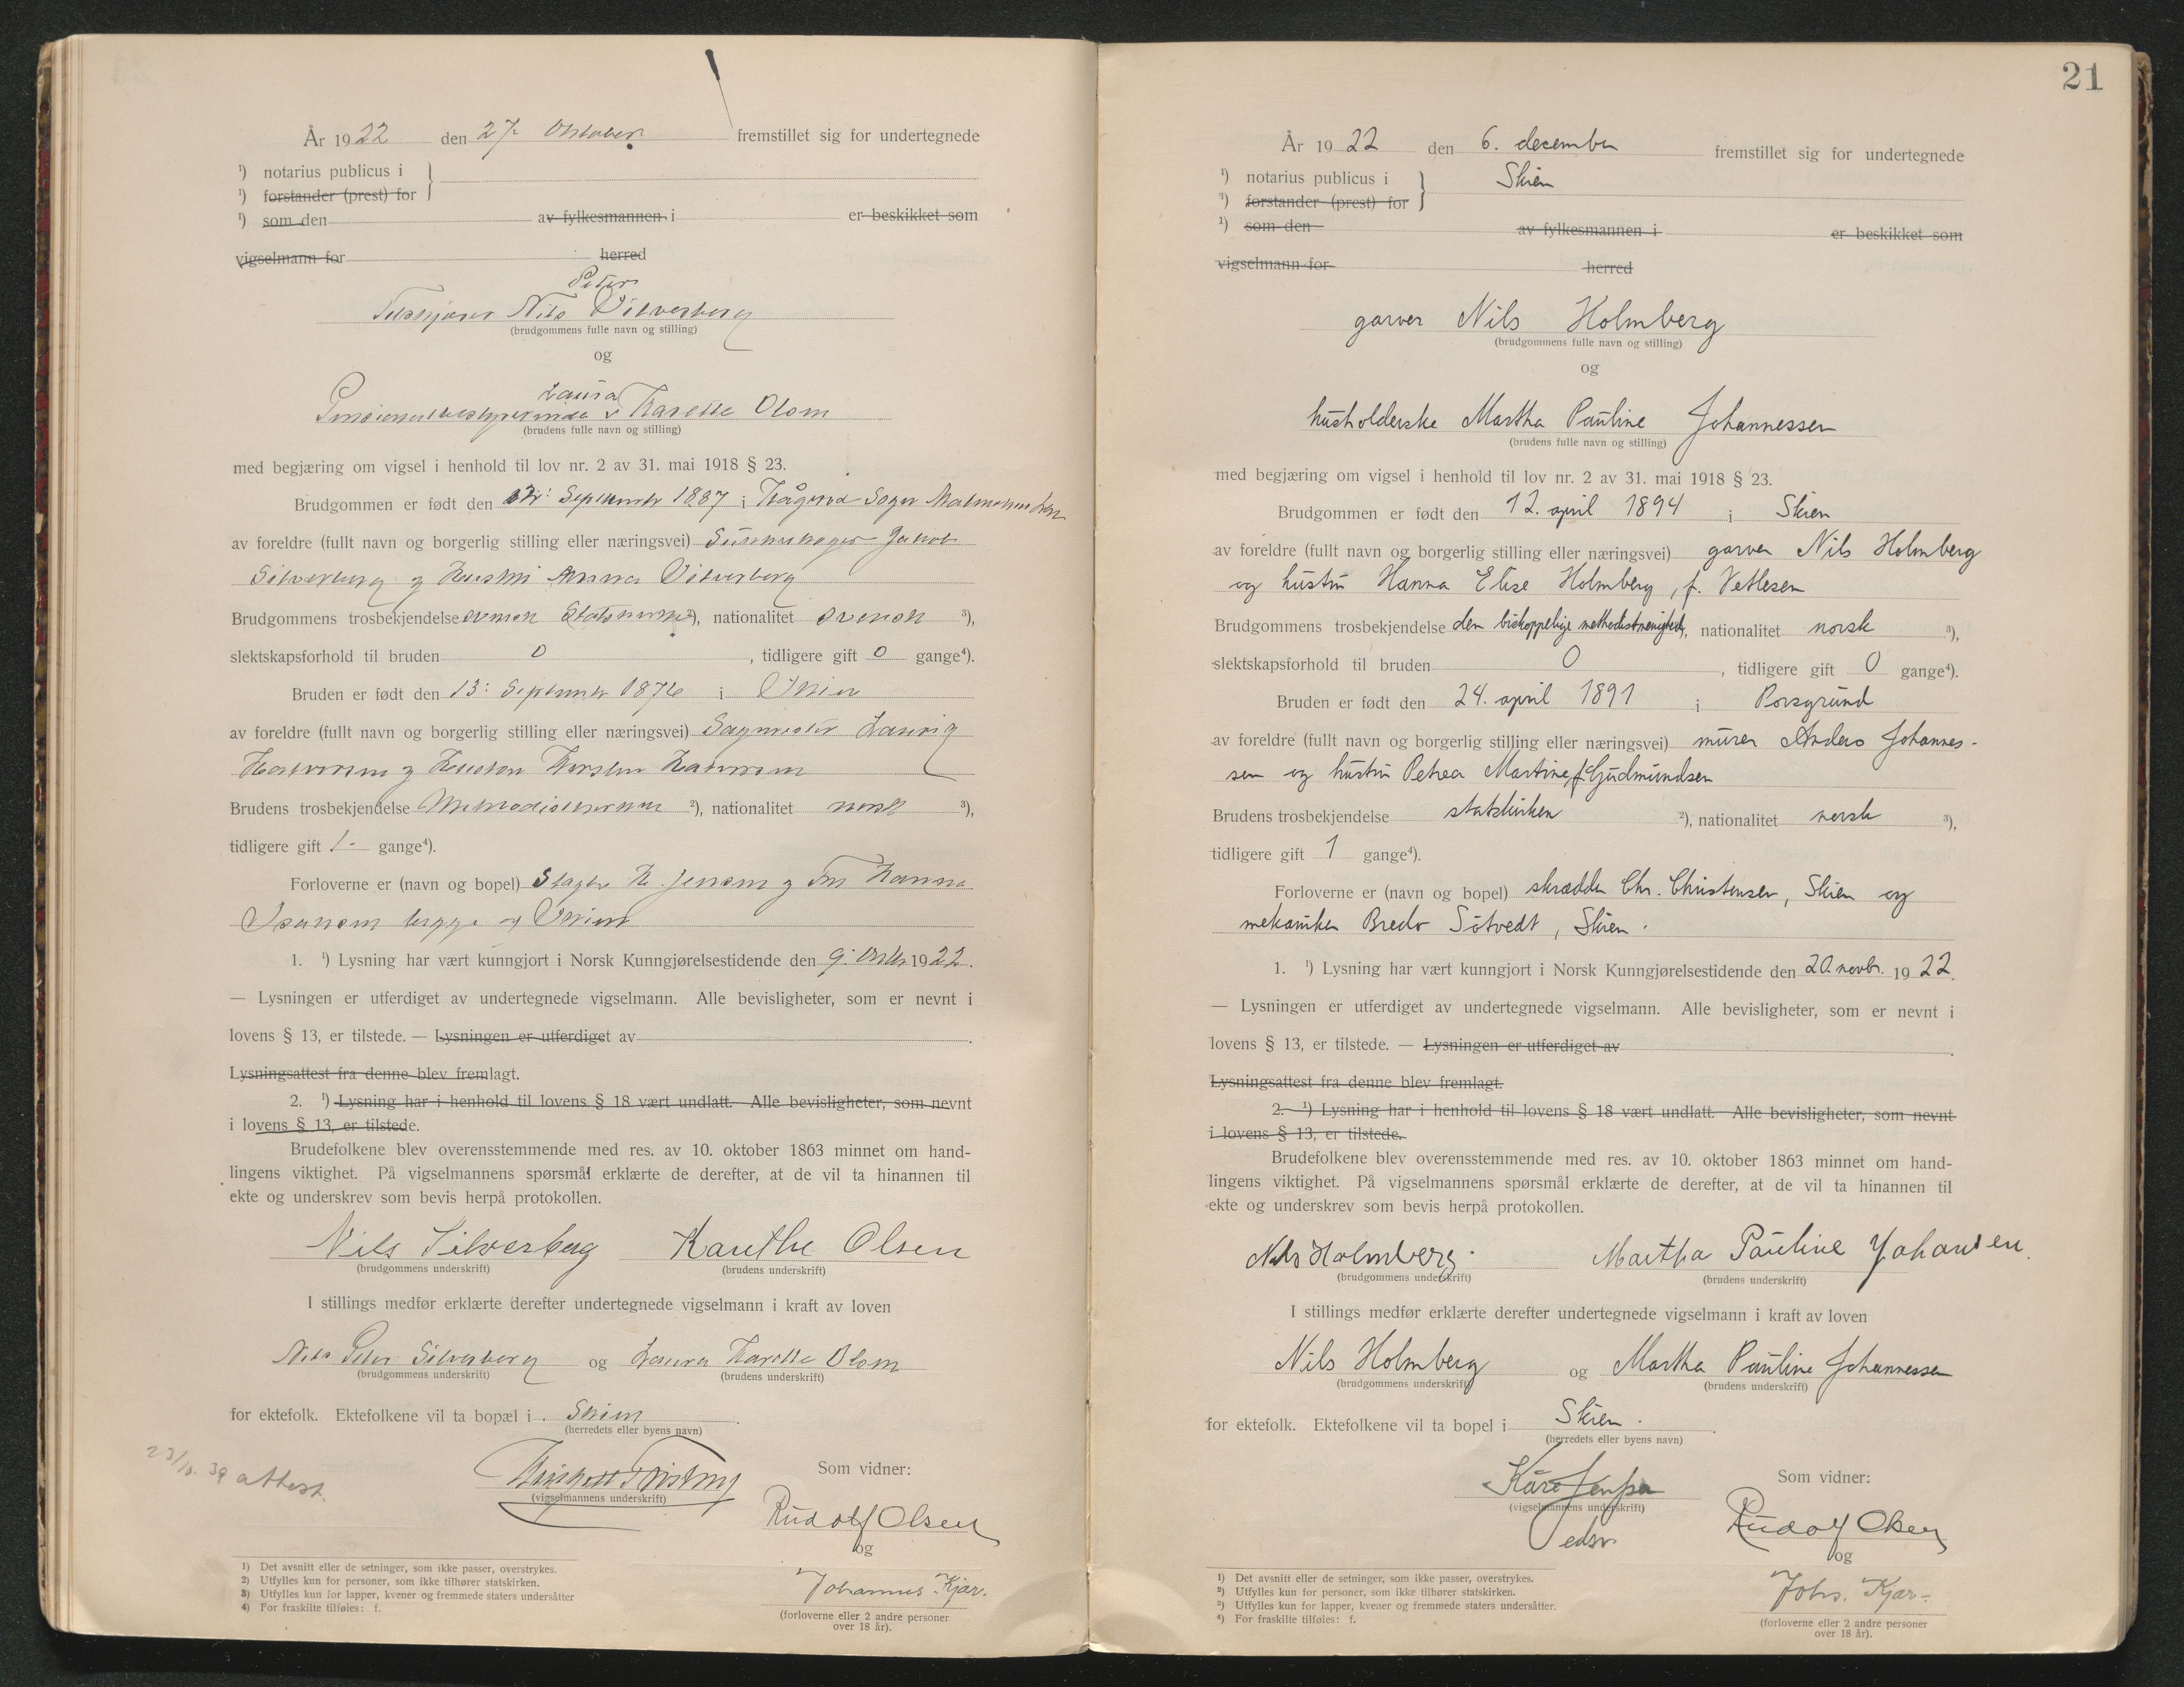 År 1922 den 27 Oktober fremstillet sig for undertegnede
¹) notarius publicus i
¹) forstander (prest) for
¹) som den av fylkesmannen i er beskikket som
vigselmann for herred
Peter
Nils Silverberg
(brudgommens fulle navn og stilling)
og
Laura
Karethe Olsen
(brudens fulle navn og stilling)
med begjæring om vigsel i henhold til lov nr. 2 av 31. mai 1918 § 23.
Brudgommen er født den September 1887 i Sogn
av foreldre (fullt navn og borgerlig stilling eller næringsvei) Jakob
Silverberg og Hustru Anna Silverberg
Brudgommens trosbekjendelse svensk Statskirke ²), nationalitet svensk ³),
slektskapsforhold til bruden 0 , tidligere gift 0 gange⁴).
Bruden er født den 13: September 1876 i Skien
av foreldre (fullt navn og borgerlig stilling eller næringsvei) Sagmester
Halvorsen og Kirsten Halvorsen
Brudens trosbekjendelse Methodistkirken ²), nationalitet norsk ³),
tidligere gift 1- gange⁴).
Forloverne er (navn og bopel) H. Jensen og Fru Hanna
begge av Skien
1. ¹) Lysning har vært kunngjort i Norsk Kunngjørelsestidende den 9. Oktbr 1922.
— Lysningen er utferdiget av undertegnede vigselmann. Alle bevisligheter, som er nevnt i
lovens § 13, er tilstede. — Lysningen er utferdiget av
Lysningsattest fra denne blev fremlagt.
2. ¹) Lysning har i henhold til lovens § 18 vært undlatt. Alle bevisligheter, som nevnt
i lovens § 13, er tilstede.
Brudefolkene blev overensstemmende med res. av 10. oktober 1863 minnet om hand-
lingens viktighet. På vigselmannens spørsmål erklærte de derefter, at de vil ta hinannen til
ekte og underskrev som bevis herpå protokollen.
Nils Silverberg Karethe Olsen
(brudgommens underskrift) (brudens underskrift)
I stillings medfør erklærte derefter undertegnede vigselmann i kraft av loven
Nils Peter Silverberg og Laura Karethe Olsen
(brudgommens underskrift) (brudens underskrift)
for ektefolk. Ektefolkene vil ta bopæl i Skien
(herredets eller byens navn)
39 attest.
Som vidner:
(vigselmannens underskrift)
Rudolf Olsen
og
Johannes Kjær.
(forloverne eller 2 andre personer
over 18 år).
1) Det avsnitt eller de setninger, som ikke passer, overstrykes.
2) Utfylles kun for personer, som ikke tilhører statskirken.
3) Utfylles kun for lapper, kvener og fremmede staters undersåtter
4) For fraskilte tilføies: f.
21
År 1922 den 6. december fremstillet sig for undertegnede
¹) notarius publicus i Skien
¹) forstander (prest) for
¹) som den av fylkesmannen i er beskikket som
vigselmann for herred
garver Nils Holmberg
(brudgommens fulle navn og stilling)
og
husholderske Martha Pauline Johannessen
(brudens fulle navn og stilling)
med begjæring om vigsel i henhold til lov nr. 2 av 31. mai 1918 § 23.
Brudgommen er født den 12. april 1894 i Skien
av foreldre (fullt navn og borgerlig stilling eller næringsvei) garver Nils Holmberg
og hustru Hanna Elise Holmberg, f. Vetlesen
Brudgommens trosbekjendelse den biskoppelige methodistmenighed, nationalitet norsk ³),
slektskapsforhold til bruden 0 , tidligere gift 0 gange⁴).
Bruden er født den 24. april 1891 i Porsgrund
av foreldre (fullt navn og borgerlig stilling eller næringsvei) murer Anders Johannes-
sen og hustru Petrea Martine, f. Gudmundsen
Brudens trosbekjendelse statskirken ²), nationalitet norsk ³),
tidligere gift 1 gange⁴).
Forloverne er (navn og bopel) skrædder Chr. Christensen, Skien og
mekaniker Bredo Såtvedt, Skien.
1. ¹) Lysning har vært kunngjort i Norsk Kunngjørelsestidende den 20. novbr. 1922.
— Lysningen er utferdiget av undertegnede vigselmann. Alle bevisligheter, som er nevnt i
lovens § 13, er tilstede. — Lysningen er utferdiget av
Lysningsattest fra denne blev fremlagt.
2. ¹) Lysning har i henhold til lovens § 18 vært undlatt. Alle bevisligheter, som nevnt
i lovens § 13, er tilstede.
Brudefolkene blev overensstemmende med res. av 10. oktober 1863 minnet om hand-
lingens viktighet. På vigselmannens spørsmål erklærte de derefter, at de vil ta hinannen til
ekte og underskrev som bevis herpå protokollen.
Nils Holmberg. Martha Pauline Johansen.
(brudgommens underskrift) (brudens underskrift)
I stillings medfør erklærte derefter undertegnede vigselmann i kraft av loven
Nils Holmberg og Martha Pauline Johannessen
(brudgommens underskrift) (brudens underskrift)
for ektefolk. Ektefolkene vil ta bopel i Skien.
(herredets eller byens navn)
Kåre
Som vidner:
(vigselmannens underskrift)
edsv.
Rudolf Olsen
og
Johs. Kjær.
(forloverne eller 2 andre personer
over 18 år).
1) Det avsnitt eller de setninger, som ikke passer, overstrykes.
2) Utfylles kun for personer, som ikke tilhører statskirken.
3) Utfylles kun for lapper, kvener og fremmede staters undersåtter.
4) For fraskilte tilføies: f.